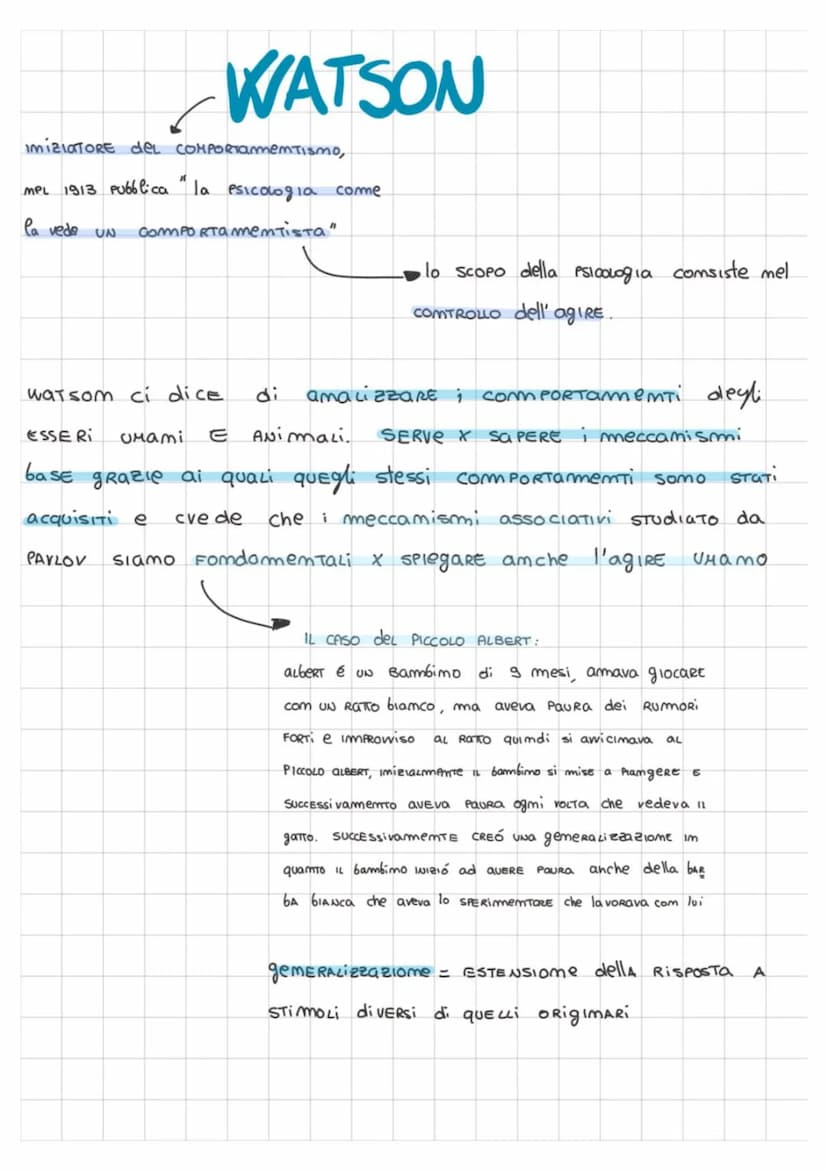 WATSON
iniziatore del comportamentismo,
nel 1913 pubblica "la psicologia come
la vede un comportamentista"
lo scopo della psicologia consiste nel
controllo dell'agire.
Watson ci dice di analizzare i comportamenti degli
esseri umani e animali. Serve x sapere i meccanismi
base grazie ai quali quegli stessi comportamenti sono stati
acquisiti e crede che i meccanismi associativi studiato da
Pavlov siano fondamentali x spiegare anche l'agire umano
Il caso del piccolo Albert:
Albert é un bambino di 9 mesi, amava giocare
con un ratto bianco, ma aveva paura dei rumori
forti e improvviso al ratto quindi si avvicinava al
piccolo Albert, inizialmente il bambino si mise a piangere e
successivamento aveva paura ogni volta che vedeva il
gatto. Successivamente creó una generalizzazione in
quanto il bambino inizió ad avere paura anche della bar
ba bianca che aveva lo sperimentore che lavorava con lui
generalizzazione = estensione della risposta a
stimoli diversi di quelli originari